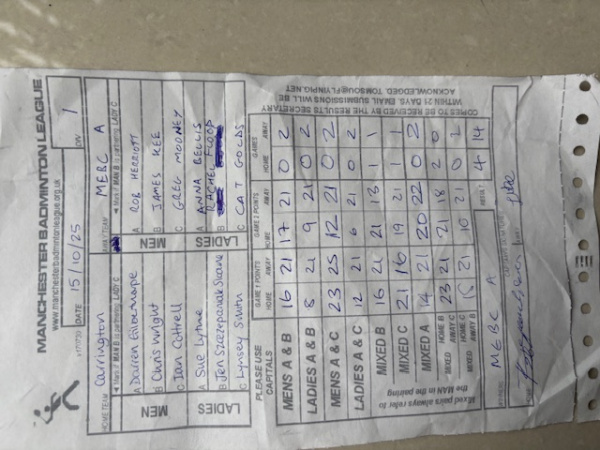 MANCHESTER BADMINTON LEAGUE
www.manchesterbadmintonleague.org.uk
DATE 15/10/25 DIV 1
HOME TEAM Carrington AWAY TEAM MEBC A
Mark if MAN B is partnering LADY C Mark if MAN B is partnering LADY C
MEN A Darren MEN A ROB HERRIOTT
B Chris Wright B JAMES KEE
C Ian Cottrell C GREG MOONEY
LADIES A Sue Lythe LADIES A ANNA BELLIS
B Jen B RACHEL FLOOD
C Lynsey Smith C CAT GOLDS
PLEASE USE CAPITALS GAME 1 POINTS GAME 2 POINTS GAMES
HOME AWAY HOME AWAY HOME AWAY
MENS A & B 16 21 17 21 0 2
LADIES A & B 8 21 9 21 0 2
MENS A & C 23 25 12 21 0 2
LADIES A & C 12 21 6 21 0 2
MIXED B 16 21 21 13 1 1
MIXED C 21 16 19 21 1 1
MIXED A 14 21 20 22 0 2
MIXED HOME B AWAY C 23 21 21 18 2 0
MIXED HOME C AWAY B 15 21 10 21 0 2
Mixed pairs always refer to the MAN in the pairing
RESULT 4 14
MEBC A
COPIES TO BE RECEIVED BY THE RESULTS SECRETARY
WITHIN 21 DAYS. EMAIL SUBMISSIONS WILL BE
ACKNOWLEDGED. TOMSOU@FLYINPIG.NET